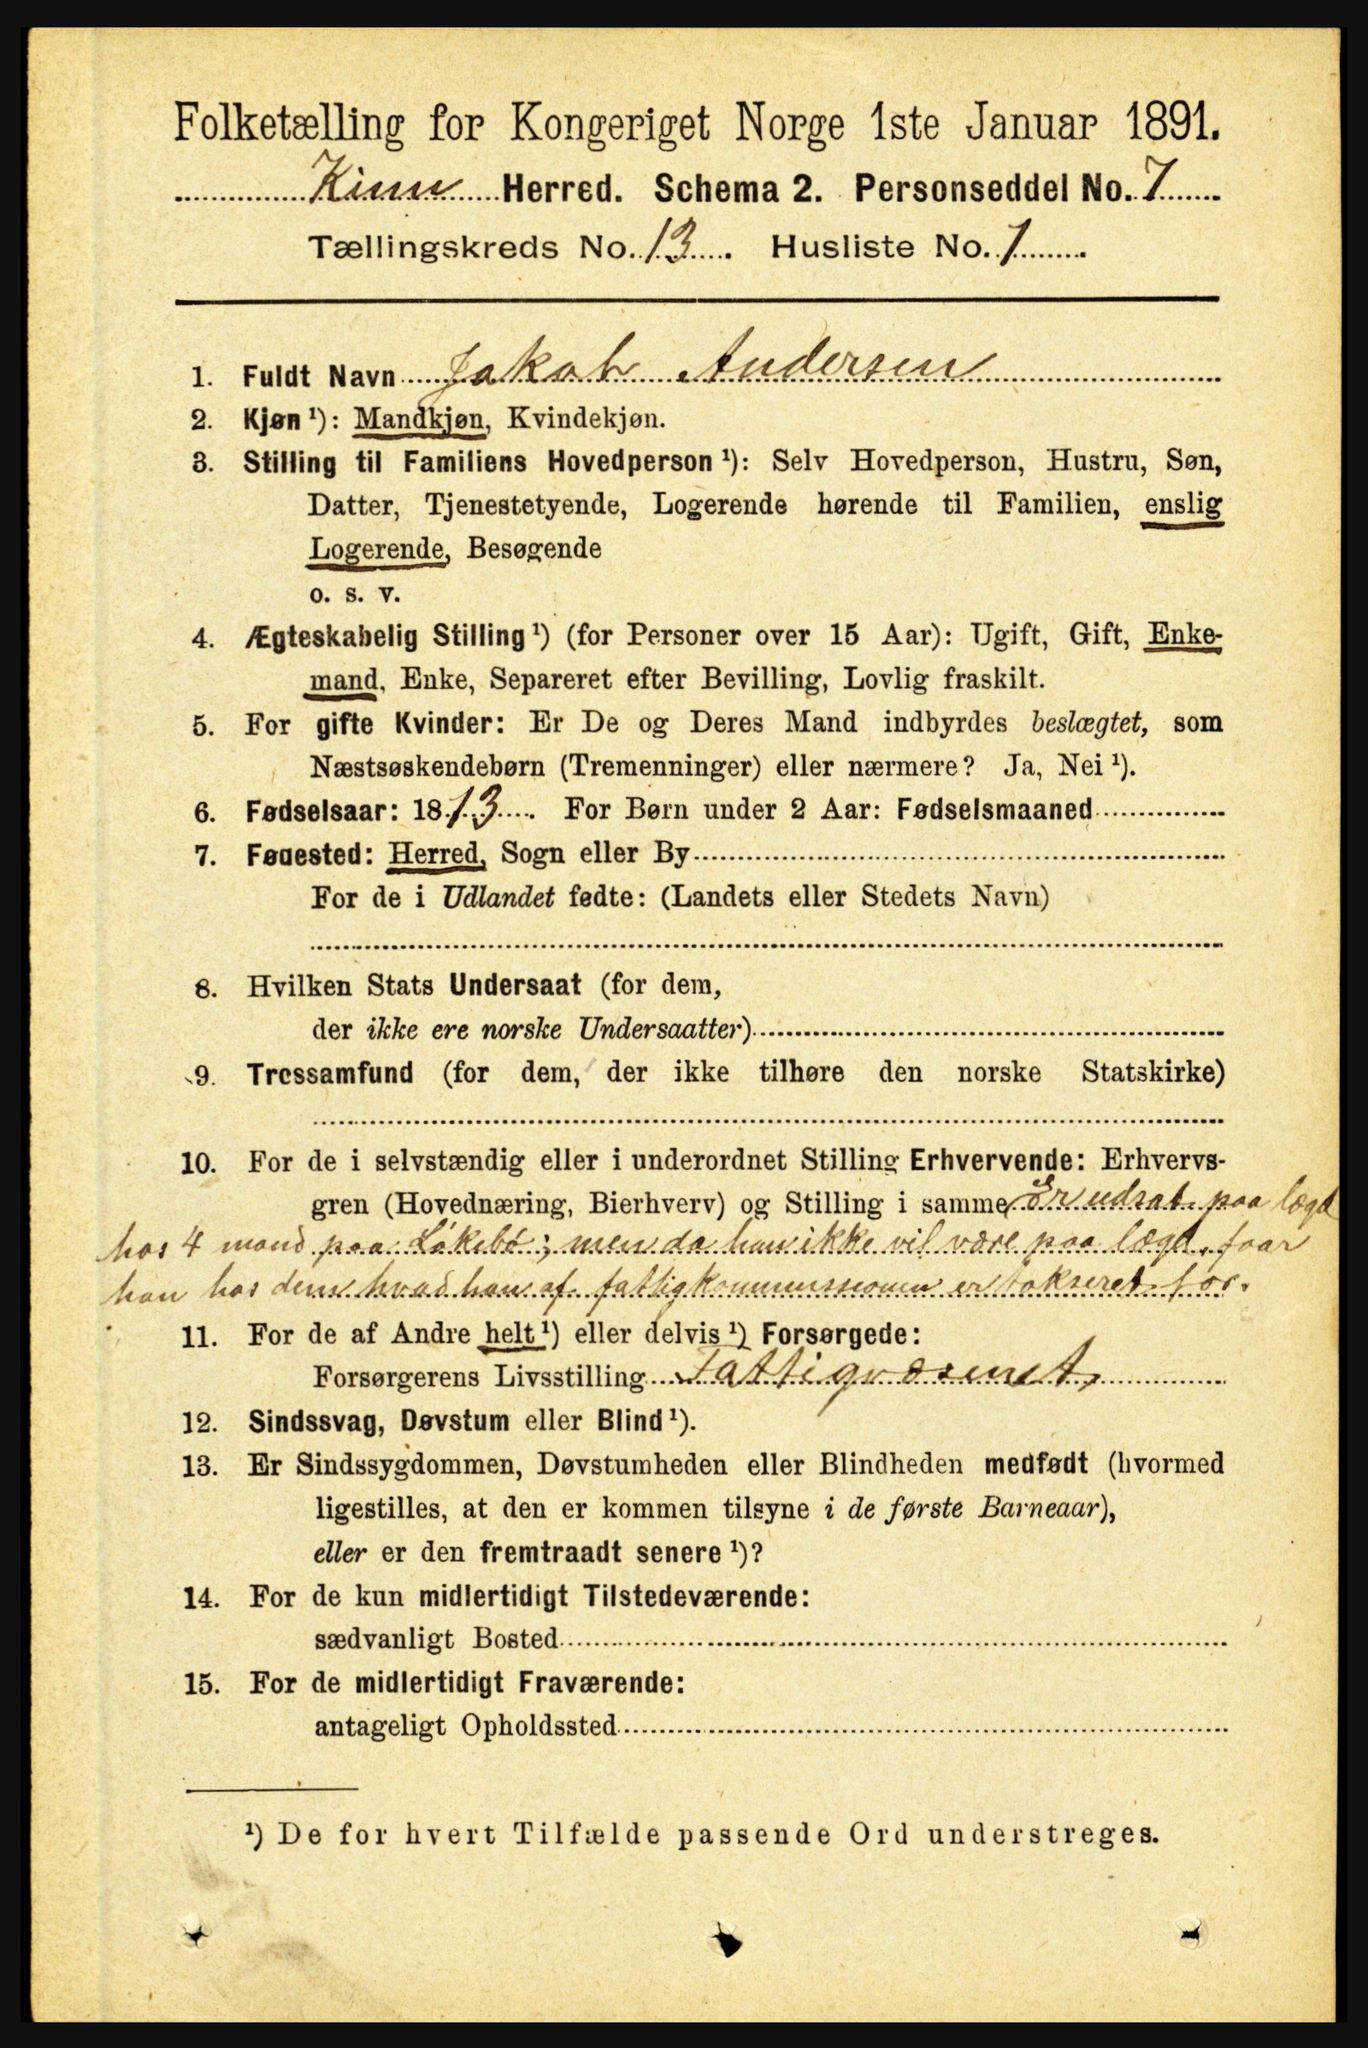 Folketælling for Kongeriget Norge 1ste Januar 1891.
Kinn Herred. Schema 2. Personseddel No. 7
Tællingskreds No. 13. Husliste No. 1
1. Fuldt Navn Jakob Andersen
2. Kjøn¹): Mandkjøn, Kvindekjøn.
3. Stilling til Familiens Hovedperson¹): Selv Hovedperson, Hustru, Søn,
Datter, Tjenestetyende, Logerende hørende til Familien, enslig
Logerende, Besøgende
o. s. v.
4. Ægteskabelig Stilling¹) (for Personer over 15 Aar): Ugift, Gift, Enke-
mand, Enke, Separeret efter Bevilling, Lovlig fraskilt.
5. For gifte Kvinder: Er De og Deres Mand indbyrdes beslægtet, som
Næstsøskendebørn (Tremenninger) eller nærmere? Ja, Nei¹).
6. Fødselsaar: 1813. For Børn under 2 Aar: Fødselsmaaned
7. Fødested: Herred, Sogn eller By
For de i Udlandet fødte: (Landets eller Stedets Navn)
8. Hvilken Stats Undersaat (for dem,
der ikke ere norske Undersaatter)
9. Trossamfund (for dem, der ikke tilhøre den norske Statskirke)
10. For de i selvstændig eller i underordnet Stilling Erhvervende: Erhvervs-
gren (Hovednæring, Bierhverv) og Stilling i samme Er udsat paa lægd
hos 4 mand paa Løkebø; men da han ikke vil være paa lægd, faar
han hos dem hvad han af fattigkommissionen er takseret for.
11. For de af Andre helt¹) eller delvis¹) Forsørgede:
Forsørgerens Livsstilling Fattigvæsenet,
12. Sindssvag, Døvstum eller Blind¹).
13. Er Sindssygdommen, Døvstumheden eller Blindheden medfødt (hvormed
ligestilles, at den er kommen tilsyne i de første Barneaar),
eller er den fremtraadt senere¹)?
14. For de kun midlertidigt Tilstedeværende:
sædvanligt Bosted
15. For de midlertidigt Fraværende:
antageligt Opholdssted
¹) De for hvert Tilfælde passende Ord understreges.